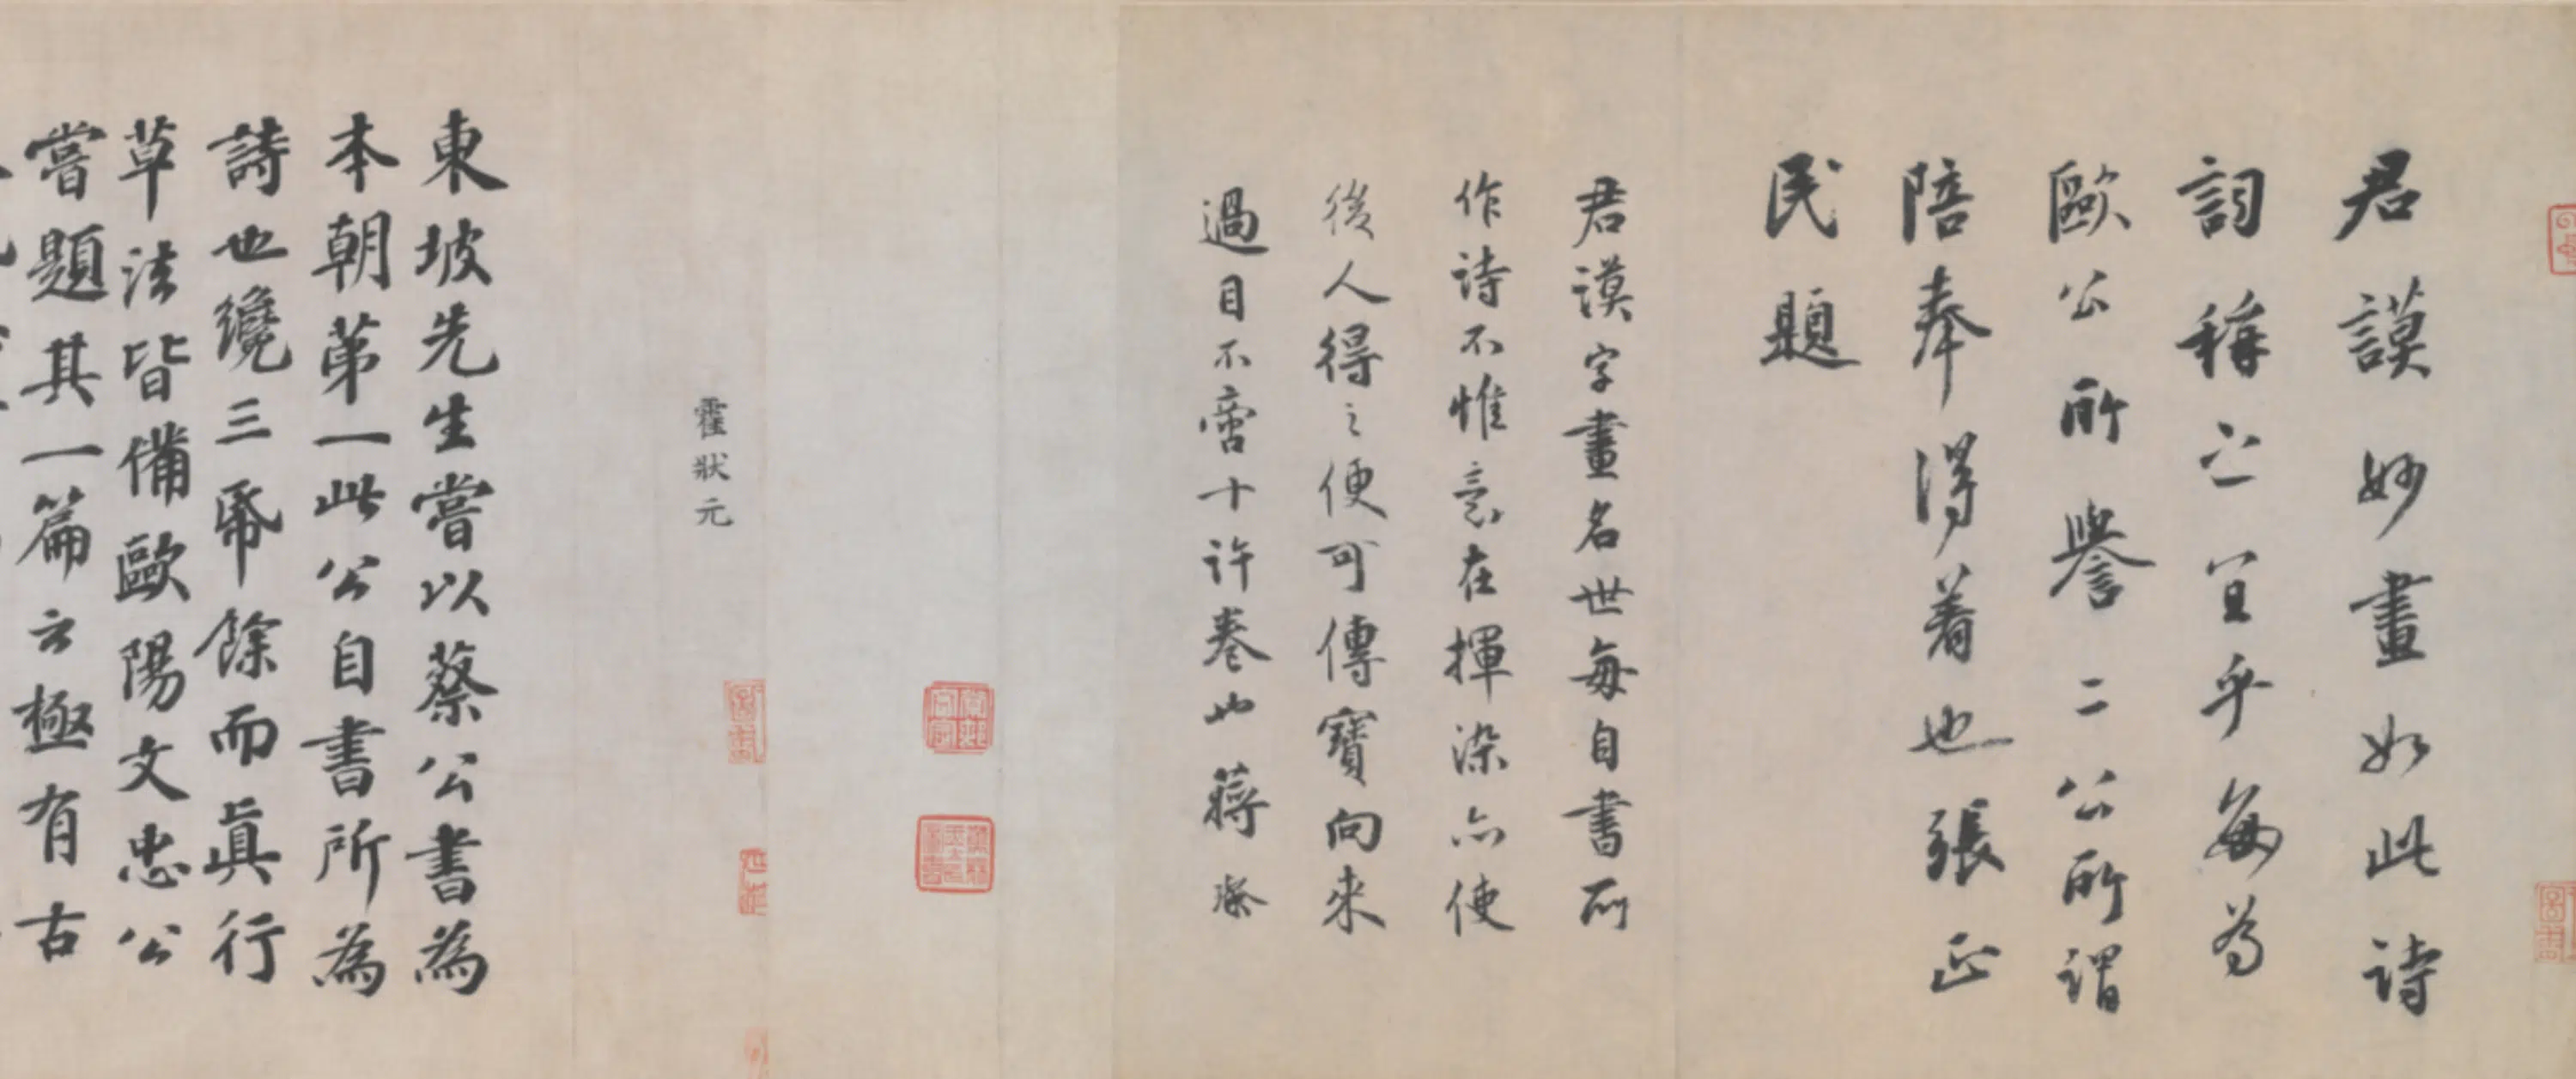 君謨妙畫如此詩
詞稱之宜乎每為
歐公所譽二公所謂
陪奉得着也張正
民題
君謨字畫名世每自書所
作詩不惟意在揮染亦使
後人得之便可傳寶向來
過目不啻十許卷也蔣璨
霍狀元
東坡先生嘗以蔡公書為
本朝第一此公自書所為
詩也纔三帋餘而真行
草法皆備歐陽文忠公
嘗題其一篇云極有古